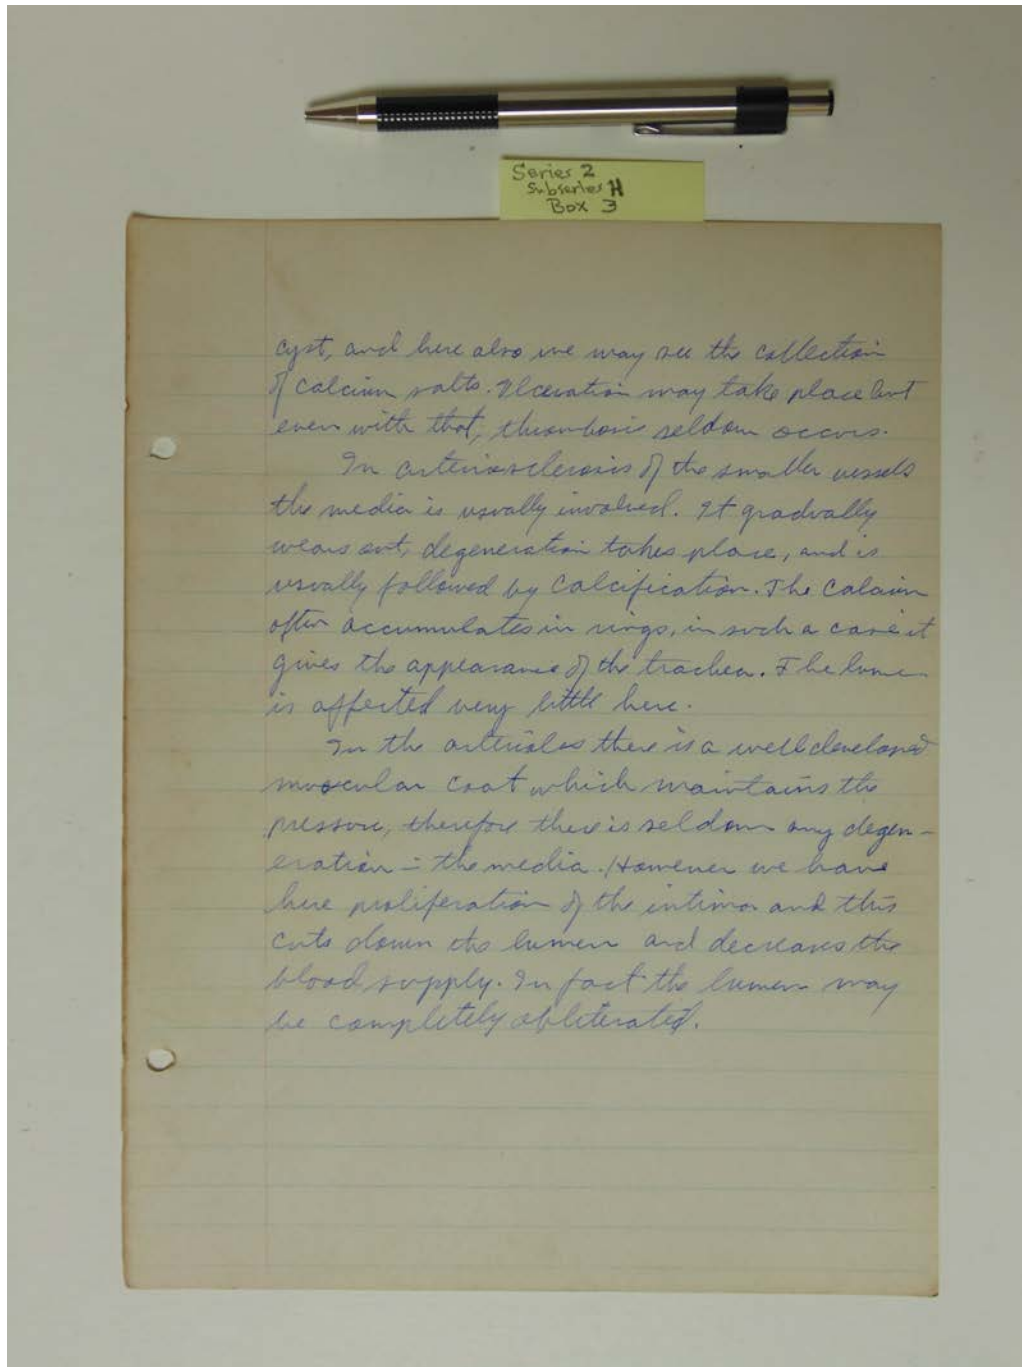 Series 2
Subseries H
Box 3
cyst, and here also we may see the collection
of calcium salts. Ulceration may take place but
even with that, thrombosis seldom occurs.
In arteriosclerosis of the smaller vessels
the media is usually involved. It gradually
wears out, degeneration takes place, and is
usually followed by calcification. The calcium
often accumulates in rings, in such a case it
gives the appearance of the trachea. The lumen
is affected very little here.
In the arterioles there is a well developed
muscular coat which maintains the
pressure, therefore there is seldom any degen-
eration - the media. However we have
here proliferation of the intima and this
cuts down the lumen and decreases the
blood supply. In fact the lumen may
be completely obliterated.